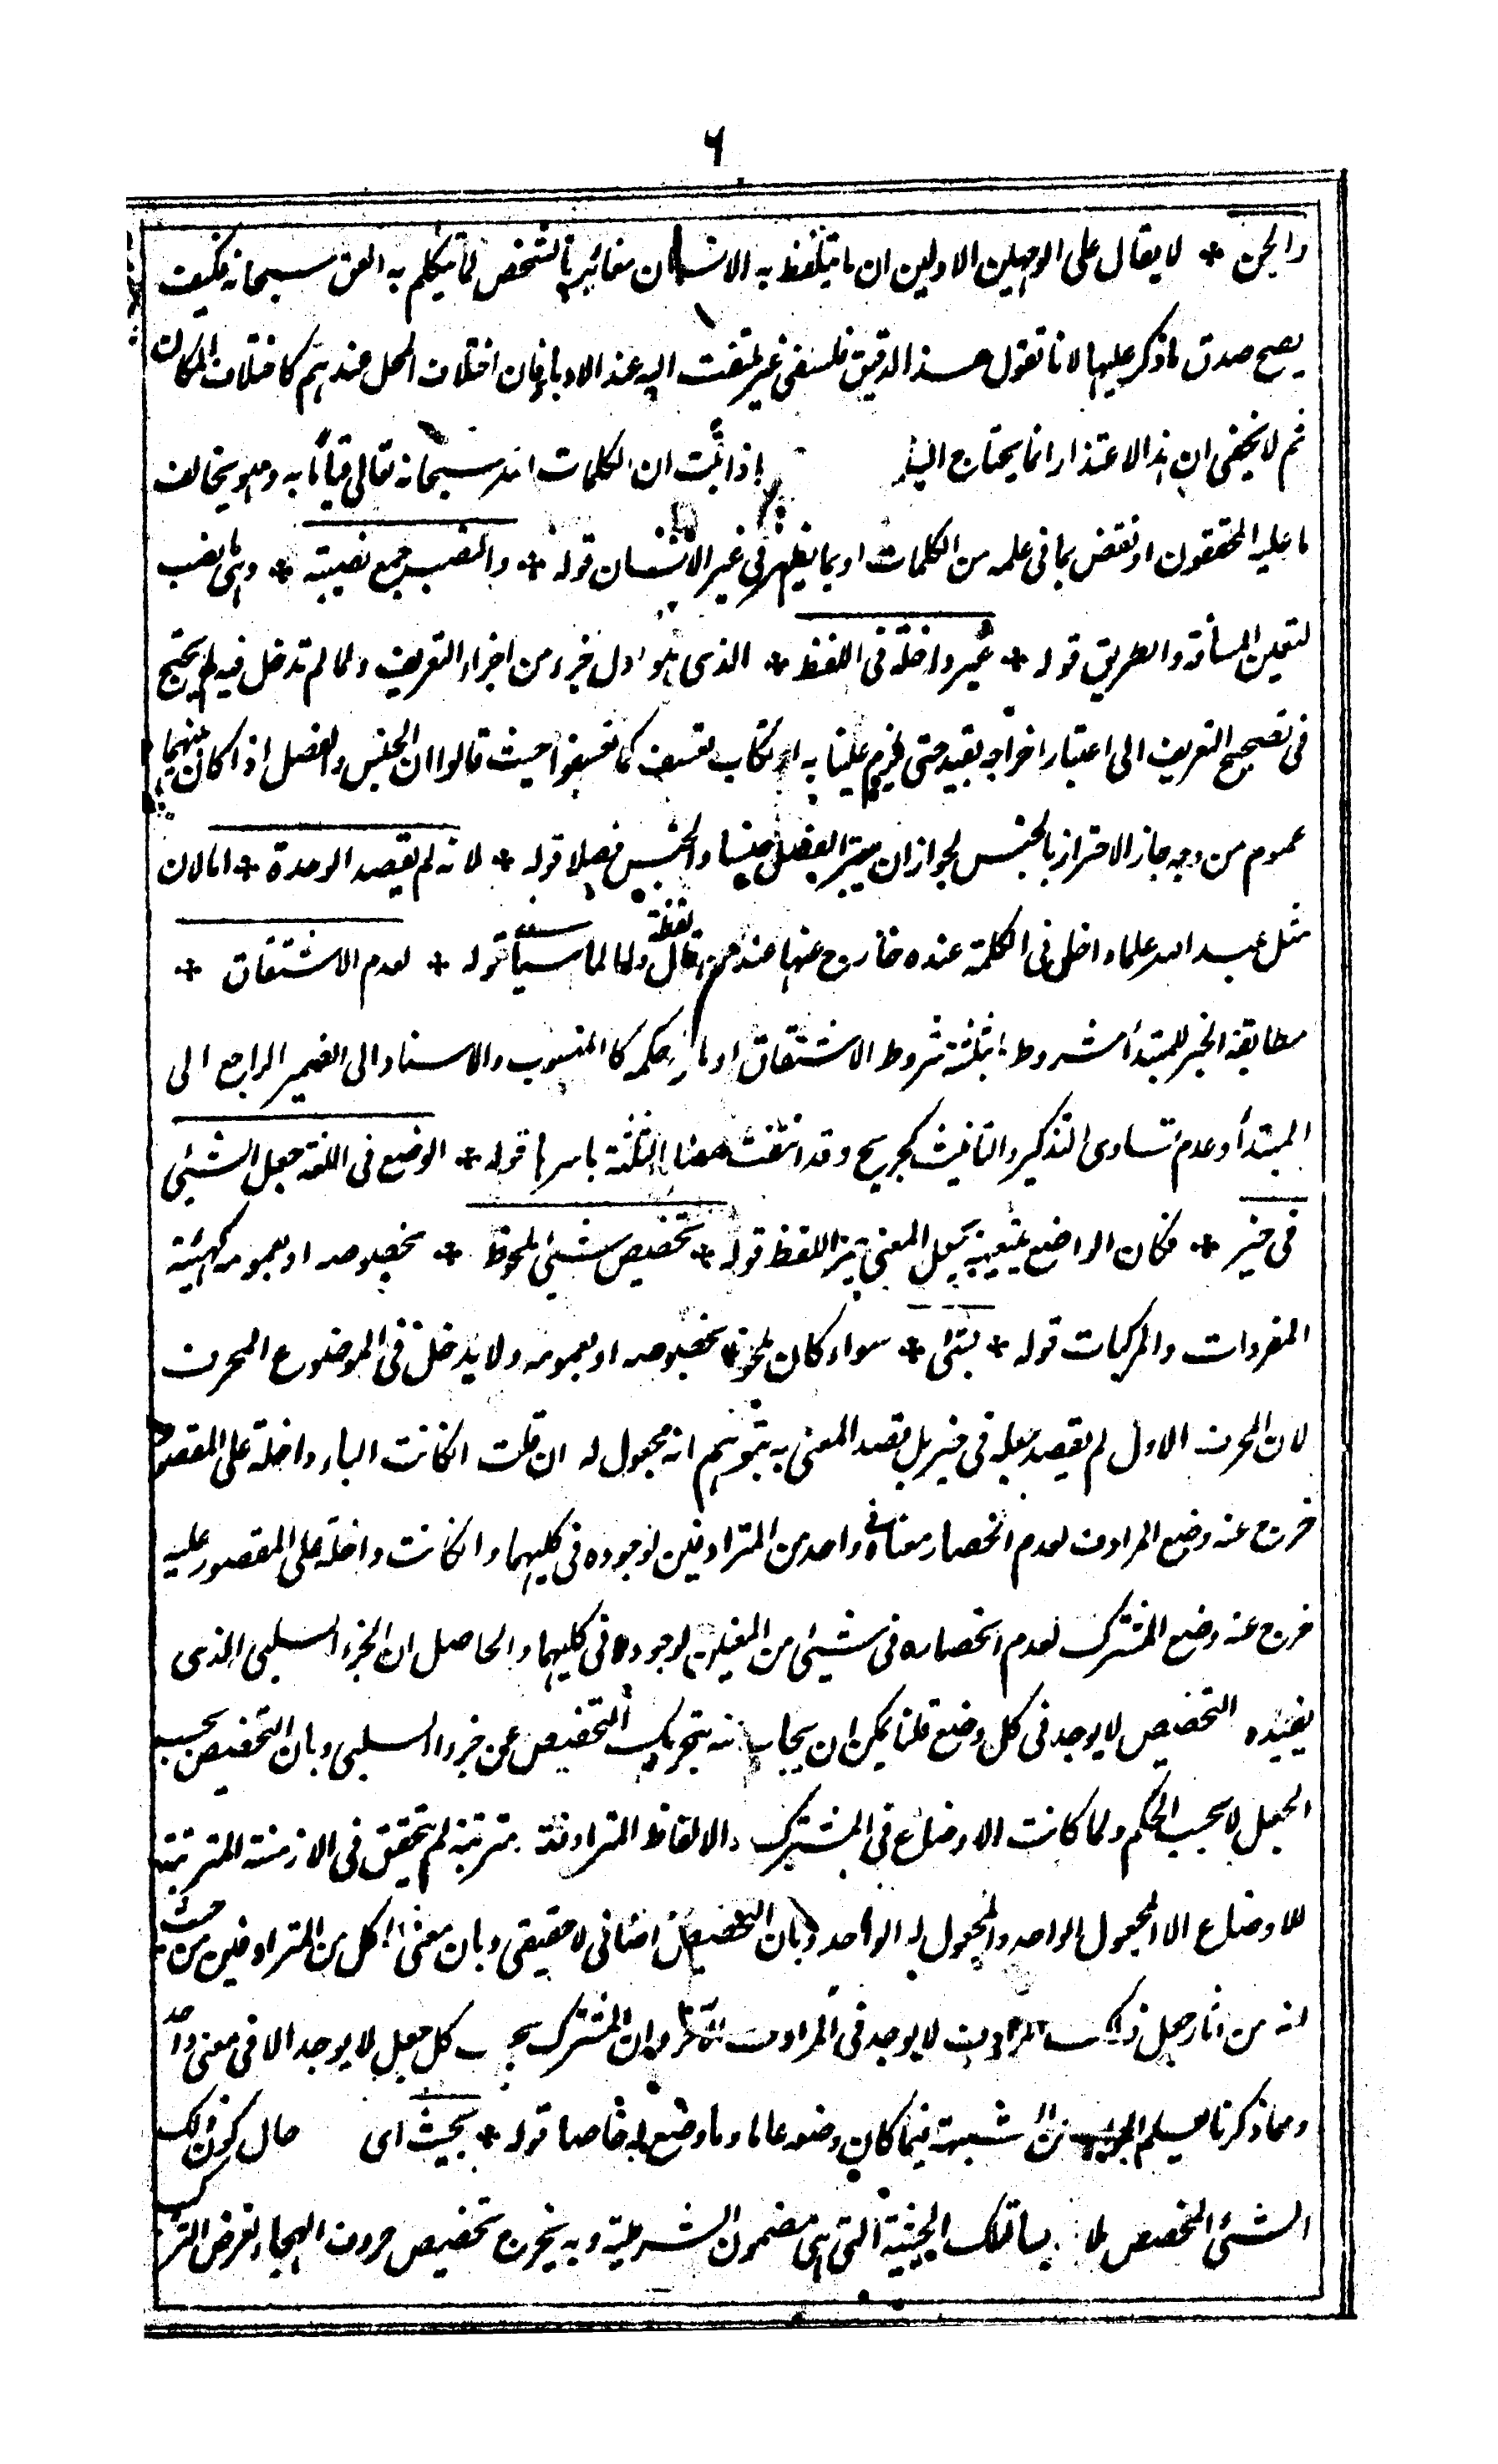 ٦
والجن * لا يقال على الوجهين الاولين ان ما يتلفظ به الانسان مغائر بالشخص لما يتكلم به الحق سبحانه فكيف
يصح صدق ما ذكر عليها لانا نقول هذا تدقيق فلسفى غير ملتفت اليه عند الادباء فان اختلاف المحل عندهم كاختلاف المكان
ثم لا يخفى ان هذا الاعتذار انما يحتاج اليه اذا ثبت ان الكلمات الله سبحانه تعالى قياما به وهو يخالف
ما عليه المحققون او نقض بما فى علمه من الكلمات او بما يظهر فى غير الانسان قوله * والنصب جمع نصيبة * وهى ما ينصب
لتعين المسافة والطريق قوله * غير داخلة فى اللفظ * الذى هو اول جزء من اجزاء التعريف ولما لم تدخل فيه لم يحتج
فى تصحيح التعريف الى اعتبار اخراجه بقيد حتى يلزم علينا به ارتكاب تعسف كما تعسفوا حيث قالوا ان الجنس والفصل اذا كان بينهما
عموم من وجه جاز الاحتراز بالجنس لجواز ان يعتبر الفصل جنسا والجنس فصلا قوله * لانه لم يقصد الوحدة * اما لان
مثل عبد الله علما داخل فى الكلمة عنده خارج عنها عند من قال لفظة واما لما سيأتى قوله * لعدم الاشتقاق *
مطابقة الخبر للمبتدأ مشروط بثلثة شروط الاشتقاق او ما فى حكمه كالمنسوب والاسناد الى الضمير الراجع الى
المبتدأ وعدم تساوى التذكير والتانيث كجريح وقد انتفت ههنا الثلثة باسرها قوله * الوضع فى اللغة جعل الشيئ
فى حيز * فكان الواضع بتعيينه يجعل المعنى حيز اللفظ قوله * تخصيص شيئ ملحوظ * بخصوصه او بعمومه كهيئة
المفردات والمركبات قوله * بشئ * سواء كان ملحوظا بخصوصه او بعمومه ولا يدخل فى الموضوع المحرف
لان المحرف الاول لم يقصد جعله فى حيز بل قصد المعنى به بتوهم انه مجعول له ان قلت ان كانت الباء داخلة على المقصور
خرج عنه وضع المرادف لعدم انحصار معناه فى واحد من المترادفين لوجوده فى كليهما وان كانت داخلة على المقصور عليه
خرج عنه وضع المشترك لعدم انحصاره فى شيئ من المعنيين لوجوده فى كليهما والحاصل ان الجزء السلبى الذى
يفيده التخصيص لا يوجد فى كل وضع قلنا يمكن ان يجاب عنه بتجريد التخصيص عن جزءه السلبى وبان التخصيص بحسب
الجعل لا بحسب الحكم ولما كانت الاوضاع فى المشترك والالفاظ المترادفة مترتبة لم يتحقق فى الازمنة المترتبة
للاوضاع الا المجعول الواحد والمجعول له الواحد وبان التخصيص اضافى لا حقيقى وبان معنى كل من المترادفين من حيث
انه من اثار جعل ذلك المرادف لا يوجد فى المرادف الآخر وان المشترك بحسب كل جعل لا يوجد الا فى معنى واحد
ومما ذكرنا يعلم الجواب عن الشبهة فيما كان وضعه عاما وما وضع له خاصا قوله * بحيث اى حال كون ذلك
الشئ المخصص ملابسا بتلك الحيثية التى هى مضمون الشرطية وبه يخرج تخصيص حروف الهجاء لغرض التركيب